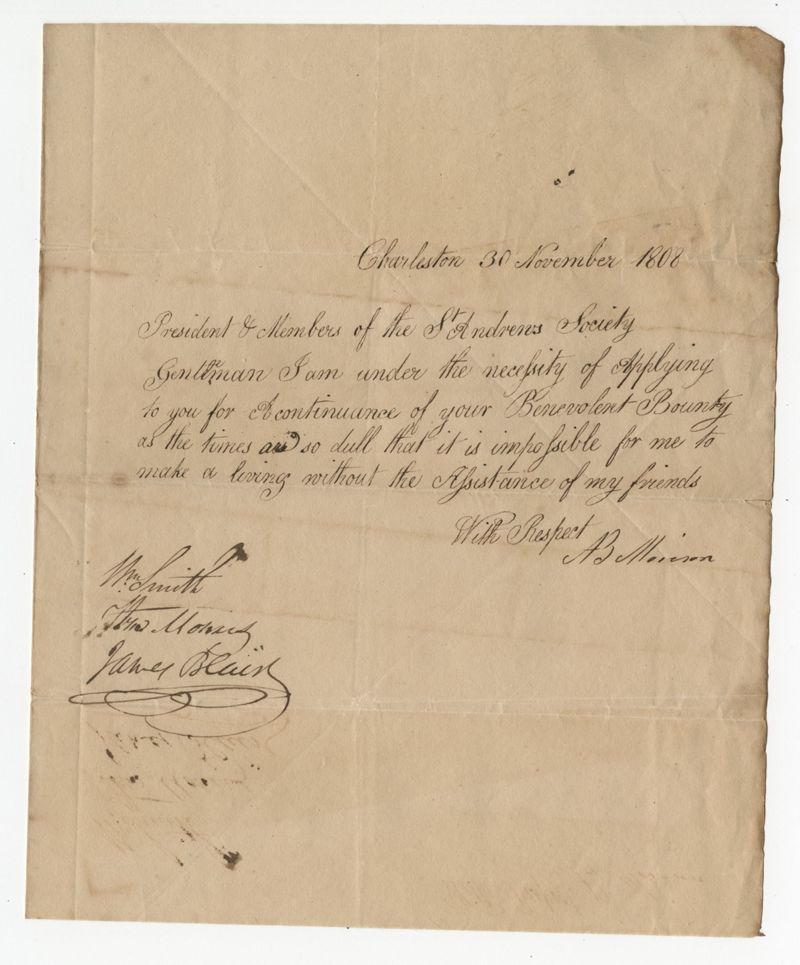 Charleston 30 November 1808
President & Members of the St Andrews Society
Gentlman I am under the necessity of Applying
to you for A continuance of your Benevolent Bounty
as the times are so dull that it is impossible for me to
make a living without the Assistance of my friends
With Respect
AB
Wm Smith
James Blair